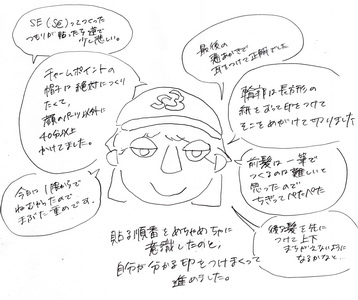 SE(SE)ってつくった
つもりが貼ったら逆で
少し悲しい。
最後の
悪あがきで
耳をつけて正解でした
チャームポイントの
帽子は絶対につくり
たくて、
顔のパーツ以外に
40分以上
かけてました。
輪郭は長方形の
紙をまず印をつけて
そこをめがけて切りました
前髪は一筆で
つくるのは難しいと
思ったので
ちぎってぺたぺた
今日は1限からで
ねむかったので
まぶた重めです。
後ろ髪を先に
つけて上下
まちがえないように
なるかなと…
貼る順番をめちゃめちゃに
意識したのと、
自分が分かる印をつけまくって
進めました。